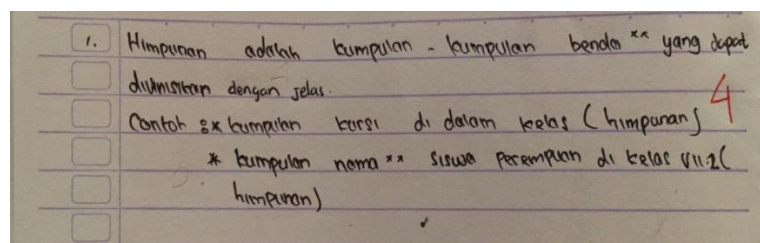 1. Himpunan adalah kumpulan - kumpulan benda ** yang dapat
didefinisikan dengan jelas.
Contoh : * kumpulan kursi di dalam kelas (himpunan)
4
* kumpulan nama ** siswa perempuan di kelas VII.2 (
himpunan)